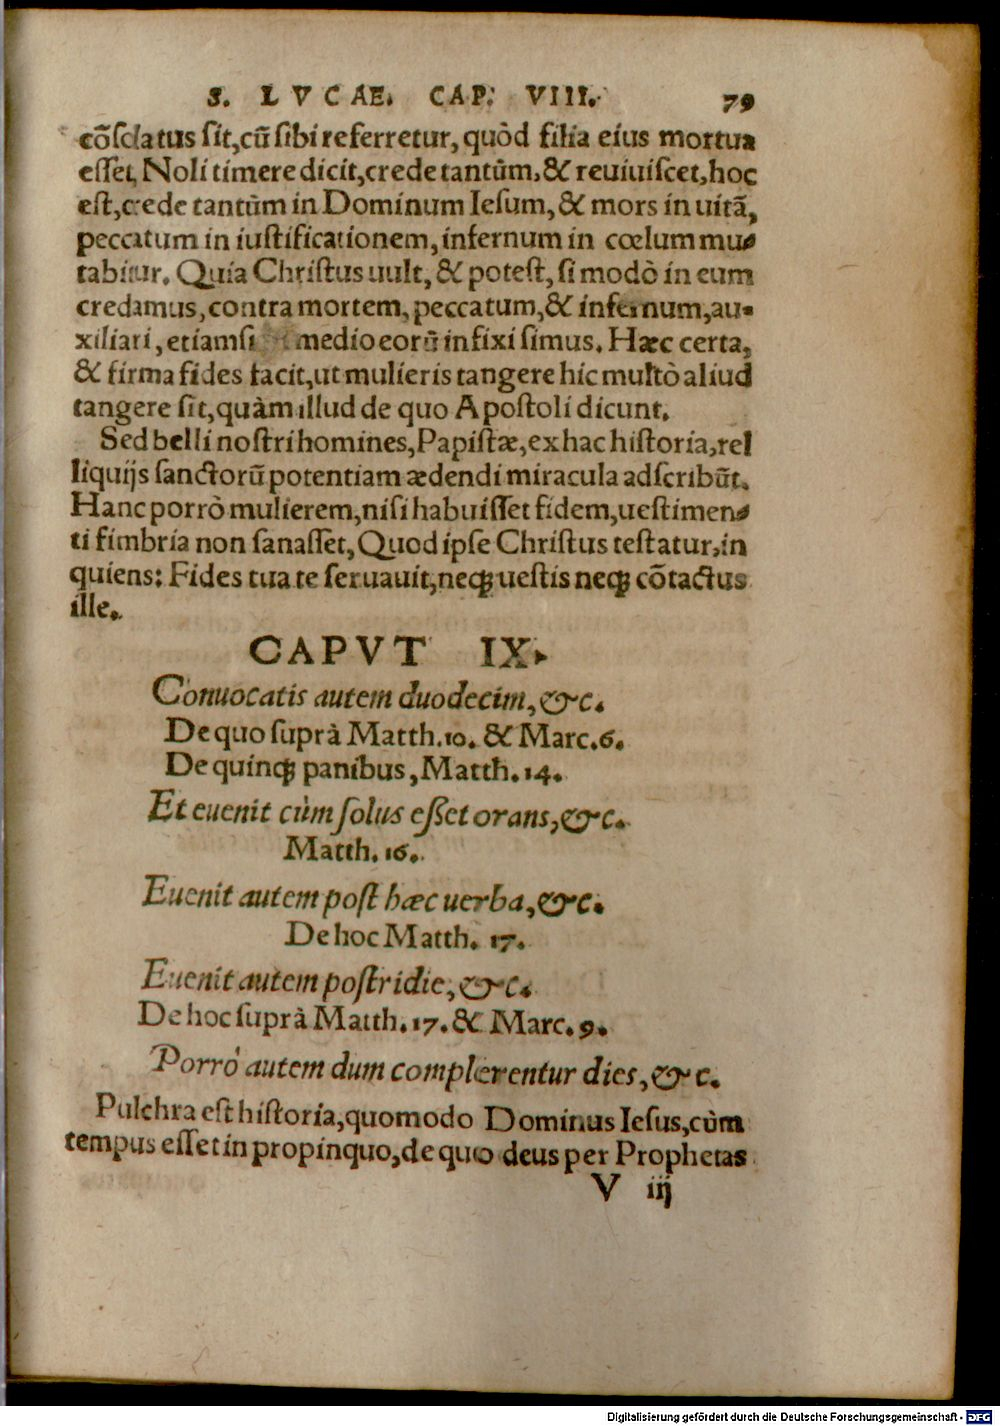 S. LVCAE. CAP. VIII. 79
cõſolatus ſit, cũ ſibi referretur, quòd filia eius mortua
eſſet, Noli timere dicit, crede tantùm, & reuiuiſcet, hoc
eſt, crede tantùm in Dominum Ieſum, & mors in uitã,
peccatum in iuſtificationem, infernum in cœlum mu⸗
tabitur. Quia Chriſtus uult, & poteſt, ſi modò in eum
credamus, contra mortem, peccatum, & infernum, au⸗
xiliari, etiamſi medio eorũ infixi ſimus. Hæc certa,
& firma fides facit, ut mulieris tangere hic multò aliud
tangere ſit, quàm illud de quo Apoſtoli dicunt.
Sed belli noſtri homines, Papiſtæ, ex hac hiſtoria, rel
liquijs ſanctorũ potentiam ædendi miracula adſcribũt.
Hanc porrò mulierem, niſi habuiſſet fidem, ueſtimen⸗
ti fimbria non ſanaſſet, Quod ipſe Chriſtus teſtatur, in
quiens: Fides tua te ſeruauit, neq; ueſtis neq; cõtactus
ille.
CAPVT IX.
Conuocatis autem duodecim, &c.
De quo ſuprà Matth. 10. & Marc. 6.
De quinq; panibus, Matth. 14.
Et euenit cùm ſolus eſſet orans, &c.
Matth. 16.
Euenit autem poſt hæc uerba, &c.
De hoc Matth. 17.
Euenit autem poſtridie, &c.
De hoc ſuprà Matth. 17. & Marc. 9.
Porrò autem dum complerentur dies, &c.
Pulchra eſt hiſtoria, quomodo Dominus Ieſus, cùm
tempus eſſet in propinquo, de quo deus per Prophetas
V iij
Digitalisierung gefördert durch die Deutsche Forschungsgemeinschaft - DFG